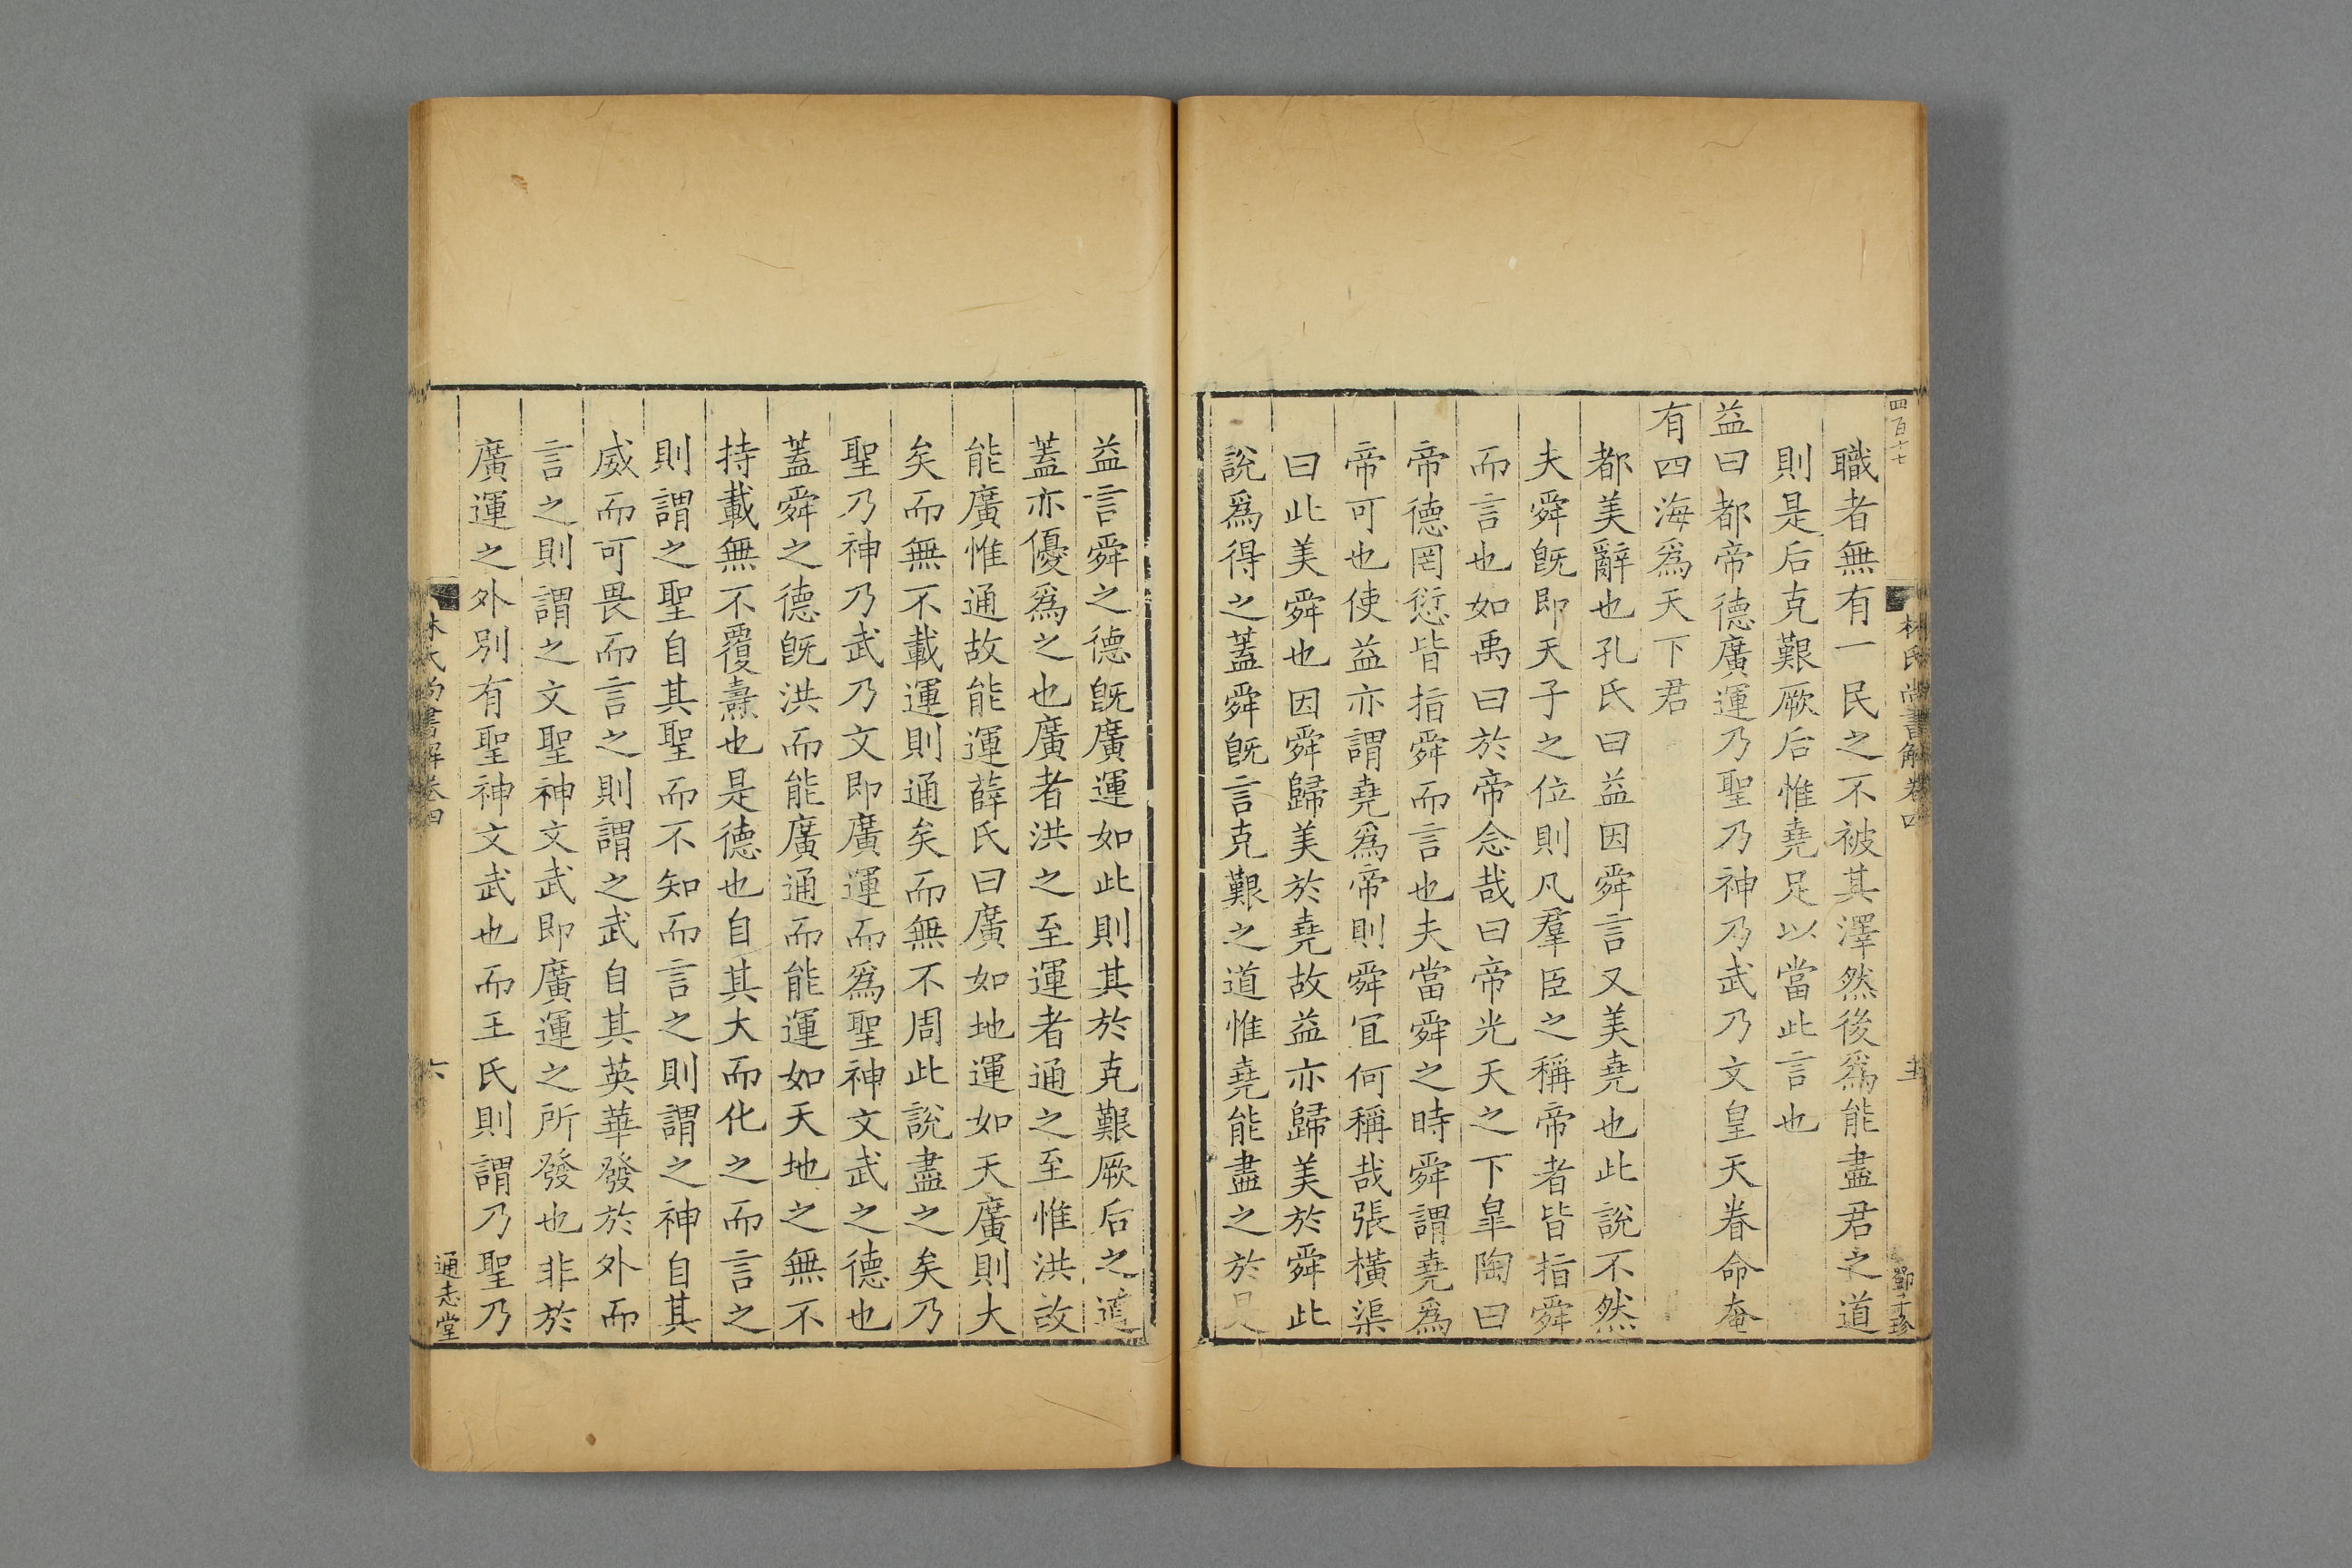 四百十七
林氏尚書解卷四
職者無有一民之不被其澤然後爲能盡君之道
則是后克艱厥后惟堯足以當此言也
益曰都帝德廣運乃聖乃神乃武乃文皇天眷命奄
有四海爲天下君
都美辭也孔氏曰益因舜言又美堯也此說不然
夫舜旣即天子之位則凡羣臣之稱帝者皆指舜
而言也如禹曰於帝念哉曰帝光天之下皐陶曰
帝德罔愆皆指舜而言也夫當舜之時舜謂堯爲
帝可也使益亦謂堯爲帝則舜宜何稱哉張橫渠
曰此美舜也因舜歸美於堯故益亦歸美於舜此
說爲得之蓋舜旣言克艱之道惟堯能盡之於是
益言舜之德旣廣運如此則其於克艱厥后之道
蓋亦優爲之也廣者洪之至運者通之至惟洪故
能廣惟通故能運薛氏曰廣如地運如天廣則大
矣而無不載運則通矣而無不周此說盡之矣乃
聖乃神乃武乃文即廣運而爲聖神文武之德也
蓋舜之德旣洪而能廣通而能運如天地之無不
持載無不覆燾也是德也自其大而化之而言之
則謂之聖自其聖而不知而言之則謂之神自其
威而可畏而言之則謂之武自其英華發於外而
言之則謂之文聖神文武即廣運之所發也非於
廣運之外別有聖神文武也而王氏則謂乃聖乃
林氏尚書解卷四
六
通志堂